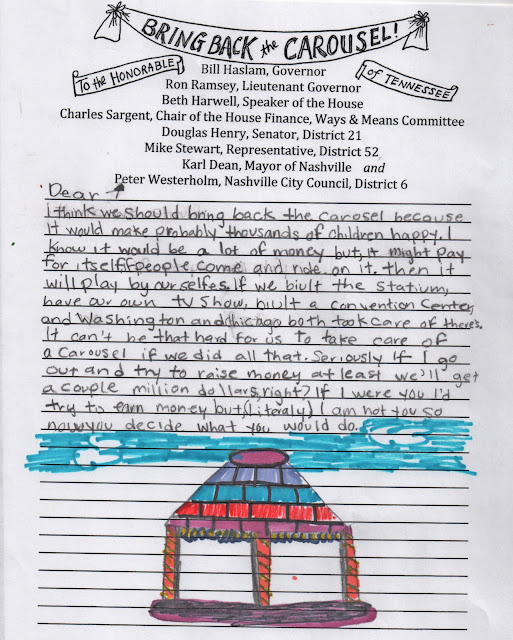 BRING BACK the CAROUSEL!
To the HONORABLE
of TENNESSEE
Bill Haslam, Governor
Ron Ramsey, Lieutenant Governor
Beth Harwell, Speaker of the House
Charles Sargent, Chair of the House Finance, Ways & Means Committee
Douglas Henry, Senator, District 21
Mike Stewart, Representative, District 52
Karl Dean, Mayor of Nashville and
Peter Westerholm, Nashville City Council, District 6
Dear
I think we should bring back the carosel because
it would make probably thousands of children happy. I
know it would be a lot of money but, it might pay
for itself if people come and ride on it. then it
will play by ourselfes. If we biult the statium,
have our own tv show, biult a convention Center,
and Washington and chicago both took care of there's.
It can't be that hard for us to take care of
a carousel if we did all that. Seriously If I go
out and try to raise money at least we'll get
a couple million dollars, right? If I were you I'd
try to earn money but, (literaly) I am not you so
now you decide what you would do.